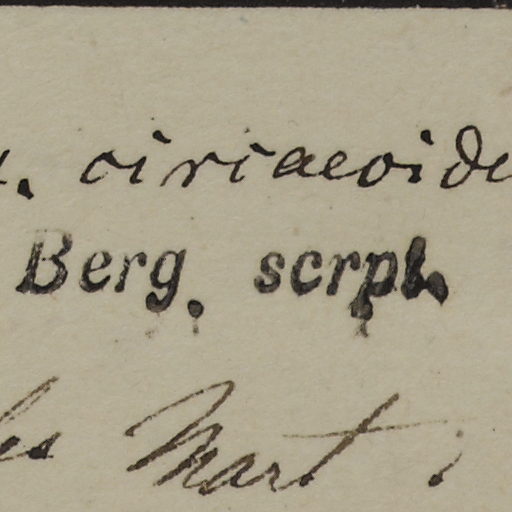 . circaeoide
Berg. scrpt.
Mart